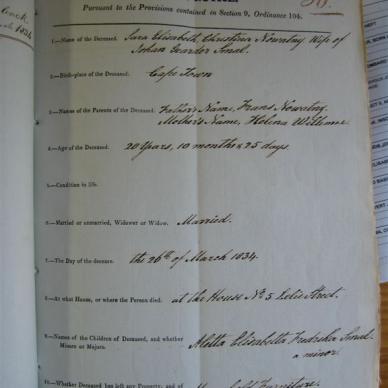 Pursuant to the Provisions contained in Section 9, Ordinance 104.
1.—Name of the Deceased. Sara Elizabeth Christina Nowatny Wife of
Johan Smal.
2.—Birth-place of the Deceased: Cape Town
3.—Names of the Parents of the Deceased: Father's Name, Frans Nowatny.
Mother's Name, Helena Willemse
4.—Age of the Deceased. 20 Years, 10 months & 25 days.
5.—Condition in life.
6.—Married or unmarried, Widower or Widow. Married.
7.—The Day of the decease. the 26th of March 1834.
8.—At what House, or where the Person died. at the House No 5 Street.
9.—Names of the Children of Deceased, and whether Minors or Majors. Metta Elisabetta Fredrika Smal.
a minor.
10.—Whether Deceased has left any Property, and of Furniture